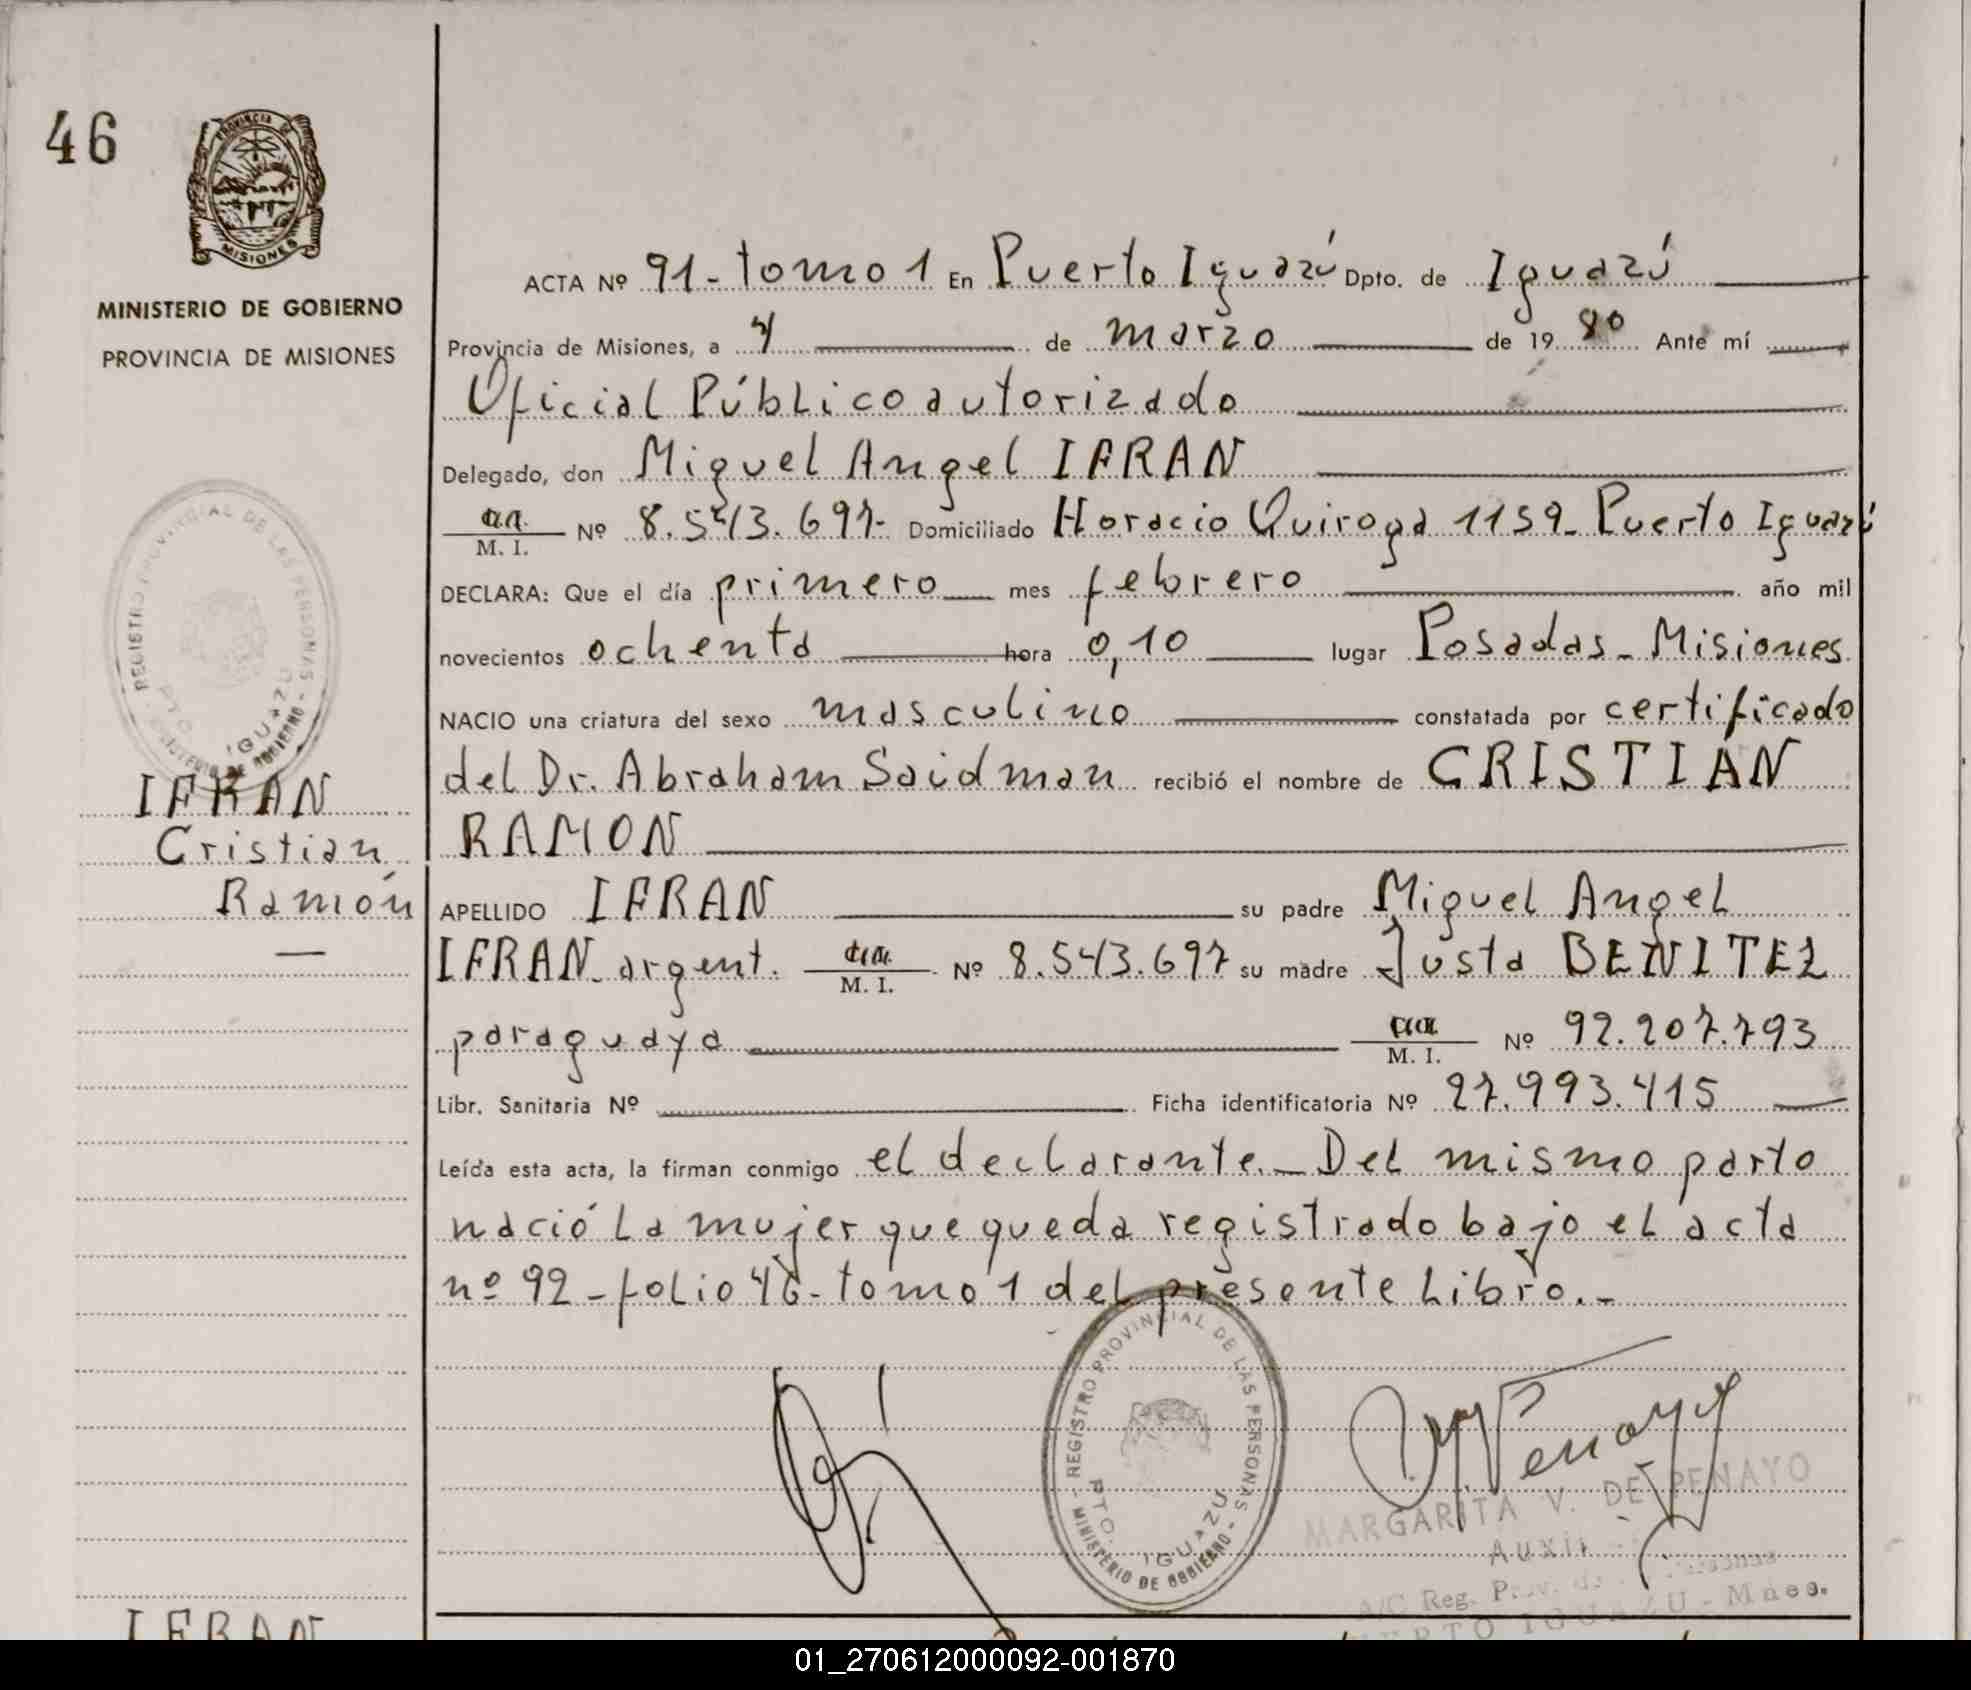 46
PROVINCIA DE
MISIONES
MINISTERIO DE GOBIERNO
PROVINCIA DE MISIONES
REGISTRO PROVINCIAL DE LAS PERSONAS - MINISTERIO DE GOBIERNO -
PTO. IGUAZU
IFRAN
Cristian
Ramón
—
ACTA Nº 91 - tomo 1 En Puerto Iguazú Dpto. de Iguazú
Provincia de Misiones, a 4 de marzo de 19 80 Ante mí
Oficial Público autorizado
Delegado, don Miguel Angel IFRAN
M. I. Nº 8.543.697- Domiciliado Horacio Quiroga 1159_ Puerto Iguazú
DECLARA: Que el día primero mes febrero año mil
novecientos ochenta hora 0,10 lugar Posadas_ Misiones
NACIO una criatura del sexo masculino constatada por certificado
del Dr. Abraham Saidman recibió el nombre de CRISTIAN
RAMON
APELLIDO IFRAN su padre Miguel Angel
IFRAN_ argent. M. I. Nº 8.543.697 su madre Justa BENITEZ
paraguaya M. I. Nº 92.207.793
Libr. Sanitaria Nº Ficha identificatoria Nº 27.993.415
Leída esta acta, la firman conmigo el declarante._ Del mismo parto
nació la mujer que queda registrado bajo el acta
nº 92 - folio 46 - tomo 1 del presente libro._
REGISTRO PROVINCIAL DE LAS PERSONAS - MINISTERIO DE GOBIERNO -
PTO. IGUAZU
MARGARITA V. DE PENAYO
A/C Reg. Prov. de
PUERTO IGUAZU - Mnes.
IFRAN
01_270612000092-001870